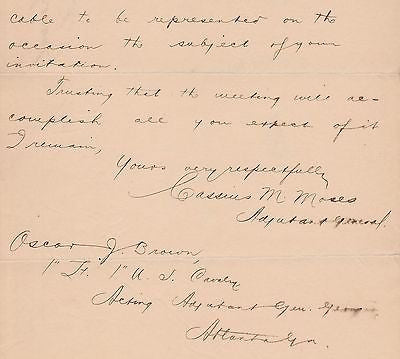 cable to be represented on the
occasion the subject of your
invitation.
Trusting that the meeting will ac-
complish all you expect of it
I remain,
Yours very respectfully
Cassius M Moses
Adjutant General.
Oscar J. Brown,
1" Lt. 1" U. S. Cavalry
Acting Adjutant Gen. Georgia
Atlanta Ga.